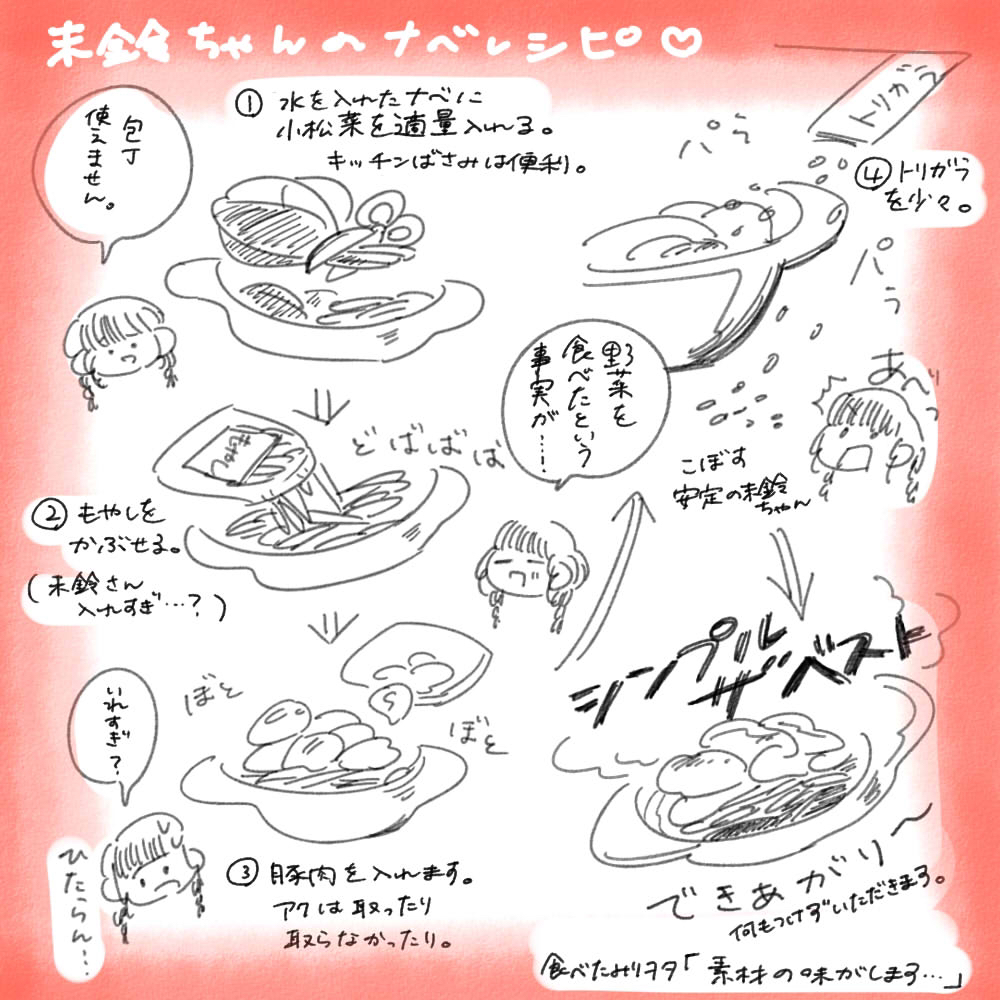 未鈴ちゃんのナベレシピ♡
① 水を入れたナベに
小松菜を適量入れる。
キッチンばさみは便利。
包丁
使えません。
もやし
どばばば
② もやしを
かぶせる。
(未鈴さん
入れすぎ…?)
ぼと
ぼと
いれすぎ?
③ 豚肉を入れます。
アクは取ったり
取らなかったり。
野菜を
食べたという
事実が…!
トリガラ
パラ
④ トリガラ
を少々。
パラ
あべっ
こぼす
安定の未鈴
ちゃん
シンプル
ザベスト
できあがり〜
何もつけずいただきます。
食べたみりヲタ「素材の味がします…」